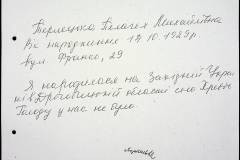 Берлецька Пелагея Михайлівна
Рік народження 12.10.1929р
вул Франко, 29
Я народилася на Західній Украї
ні в Дрогобицькій області село
Голоду у нас не було.